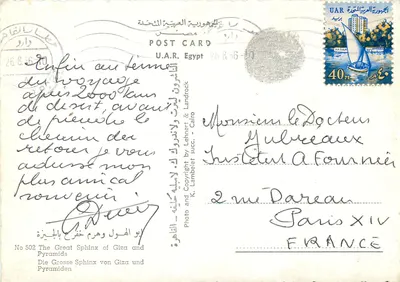 الجمهورية العربية المتحدة
مصر
POST CARD
U.A.R. Egypt
UAR
40
Enfin au terme
du voyage
après 2000 kms
de désert, avant
de prendre le
chemin du
retour je vous
adresse mon
plus amical
souvenir
Monsieur le Docteur
Institut A Fournier
2 rue Dareau
Paris XIV
FRANCE
Photo and Copyright by Lehnert & Landrock
K. Lambelet succ. Cairo
أبو الهول وهرم خفرع بالجيزة
No 502 The Great Sphinx of Giza and
Pyramids
Die Grosse Sphinx von Giza und
Pyramiden